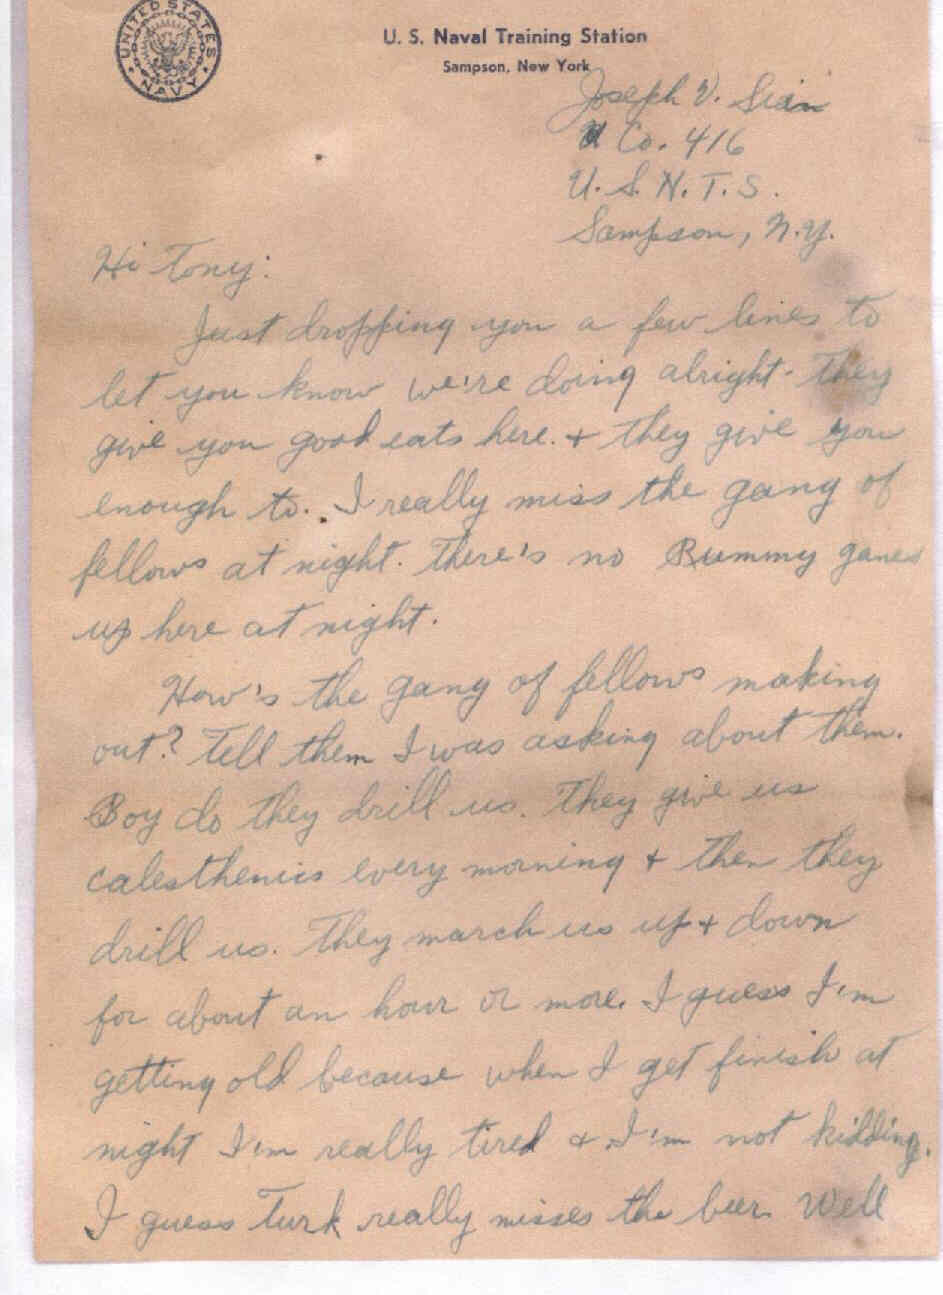 UNITED STATES
NAVY
U. S. Naval Training Station
Sampson, New York
Joseph V. Sian
Co. 416
U. S. N. T. S.
Sampson, N.Y.
Hi Tony:
Just dropping you a few lines to
let you know we're doing alright. They
give you good eats here. + they give you
enough to. I really miss the gang of
fellows at night. There's no Rummy games
up here at night.
How's the gang of fellows making
out? Tell them I was asking about them.
Boy do they drill us. They give us
calesthenics every morning + then they
drill us. They march us up + down
for about an hour or more. I guess I'm
getting old because when I get finish at
night I'm really tired & I'm not kidding.
I guess Turk really misses the beer. Well